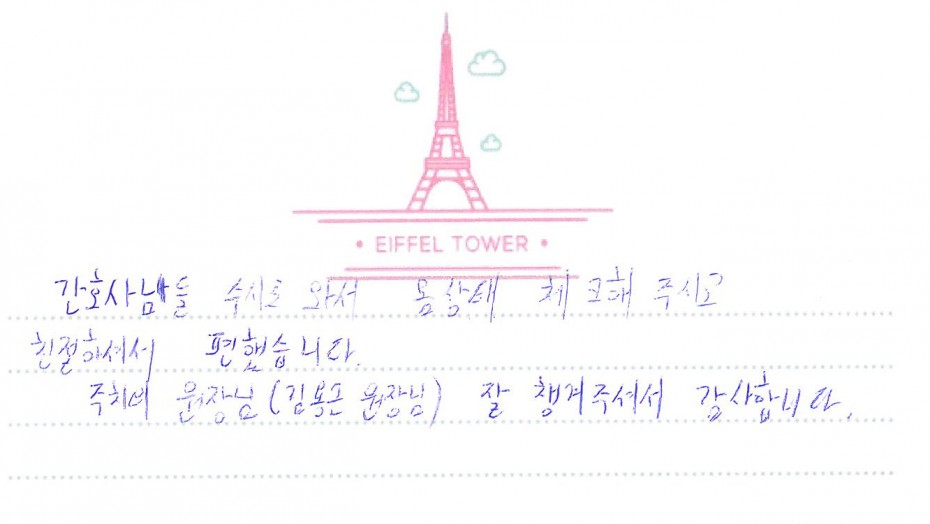 • EIFFEL TOWER •
간호사님들 수시로 와서 몸상태 체크해 주시고
친절하셔서 편했습니다.
주치의 원장님(김용근 원장님) 잘 챙겨주셔서 감사합니다.